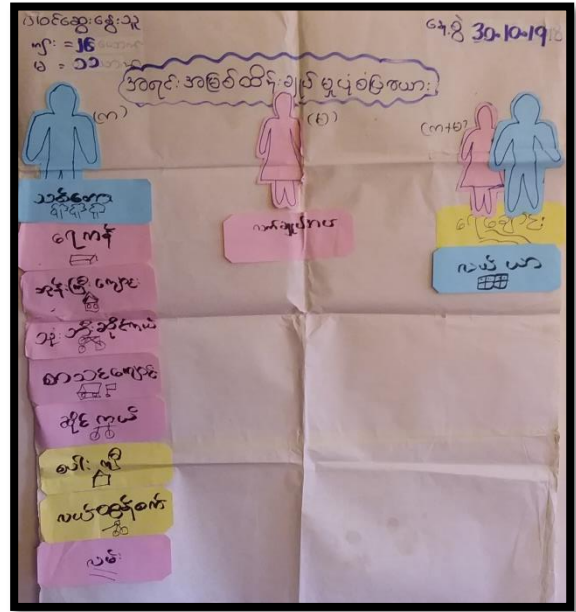 ပါဝင်ဆွေးနွေးသူ
ကျား = ၂၆
မ = ၁၁
နေ့စွဲ 30-10-19
အရင်းအမြစ်ထိန်းချုပ်မှုပုံစံပြဇယား
(က)
(မ)
(က+မ)
သစ်တော
ရေကန်
ဘုန်းကြီးကျောင်း
သုံးဘီးဆိုင်ကယ်
စာသင်ကျောင်း
ဆိုင်ကယ်
လယ်ထွန်စက်
လမ်း
ရေချောင်း
လယ်ယာ